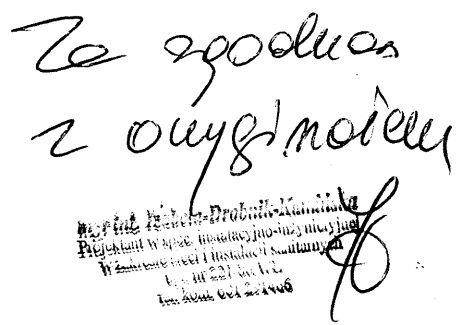 Za zgodność
z oryginałem
Izabela Drobnik-Kamińska
Projektant w spec. instalacyjno-inżynieryjnej
w zakresie sieci i instalacji sanitarnych
upr. nr 221
tel. kom. 601